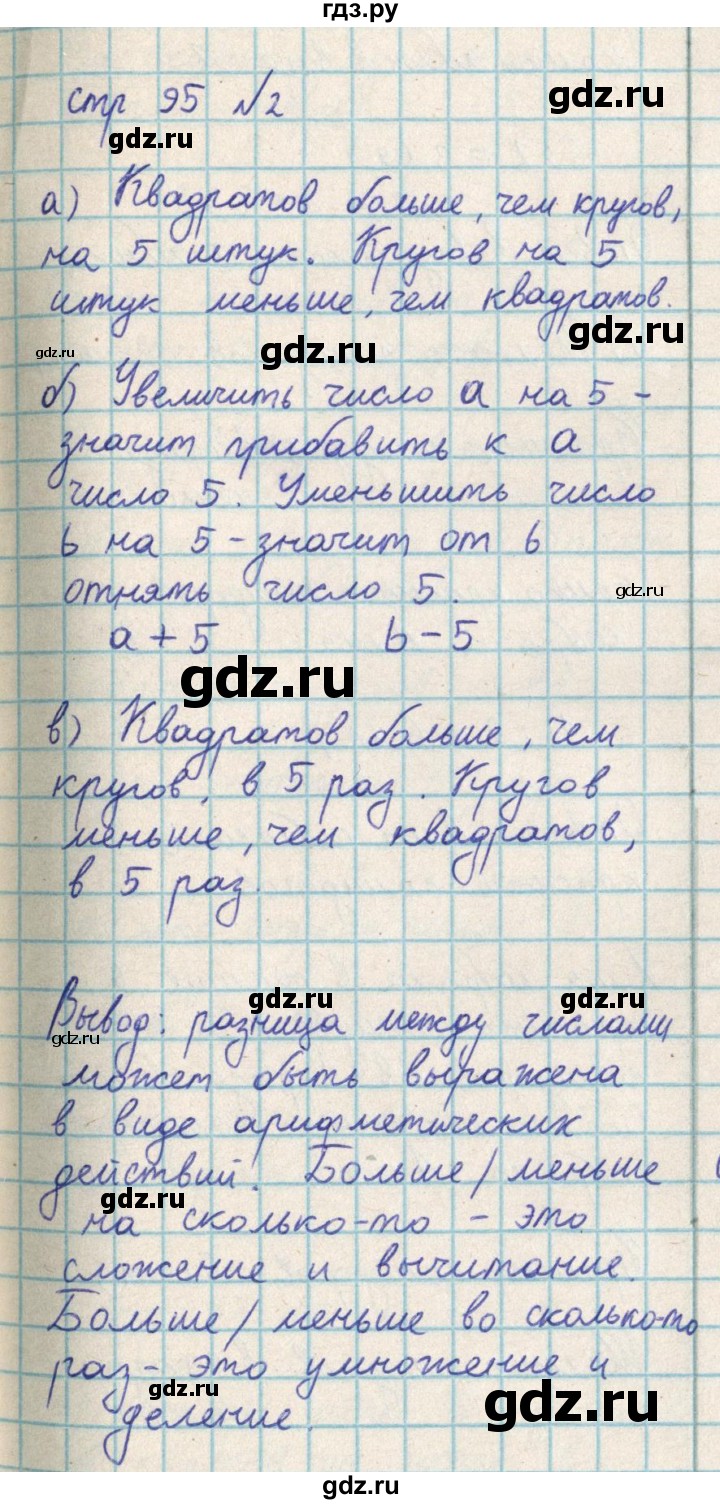 гдз.ру
стр 95 №2
gdz.ru
gdz.ru
а) Квадратов больше, чем кругов,
на 5 штук. Кругов на 5
штук меньше, чем квадратов.
gdz.ru
gdz.ru
gdz.ru
б) Увеличить число a на 5 -
значит прибавить к a
число 5. Уменьшить число
b на 5 - значит от b
отнять число 5.
gdz.ru
a + 5 b - 5
gdz.ru
в) Квадратов больше, чем
кругов, в 5 раз. Кругов
меньше, чем квадратов,
в 5 раз.
gdz.ru
gdz.ru
Вывод: разница между числами
gdz.ru
может быть выражена
в виде арифметических
действий. Больше/меньше
gdz.ru
на сколько-то - это
сложение и вычитание.
Больше/меньше во сколько-то
раз - это умножение и
gdz.ru
gdz.ru
деление.
gdz.ru